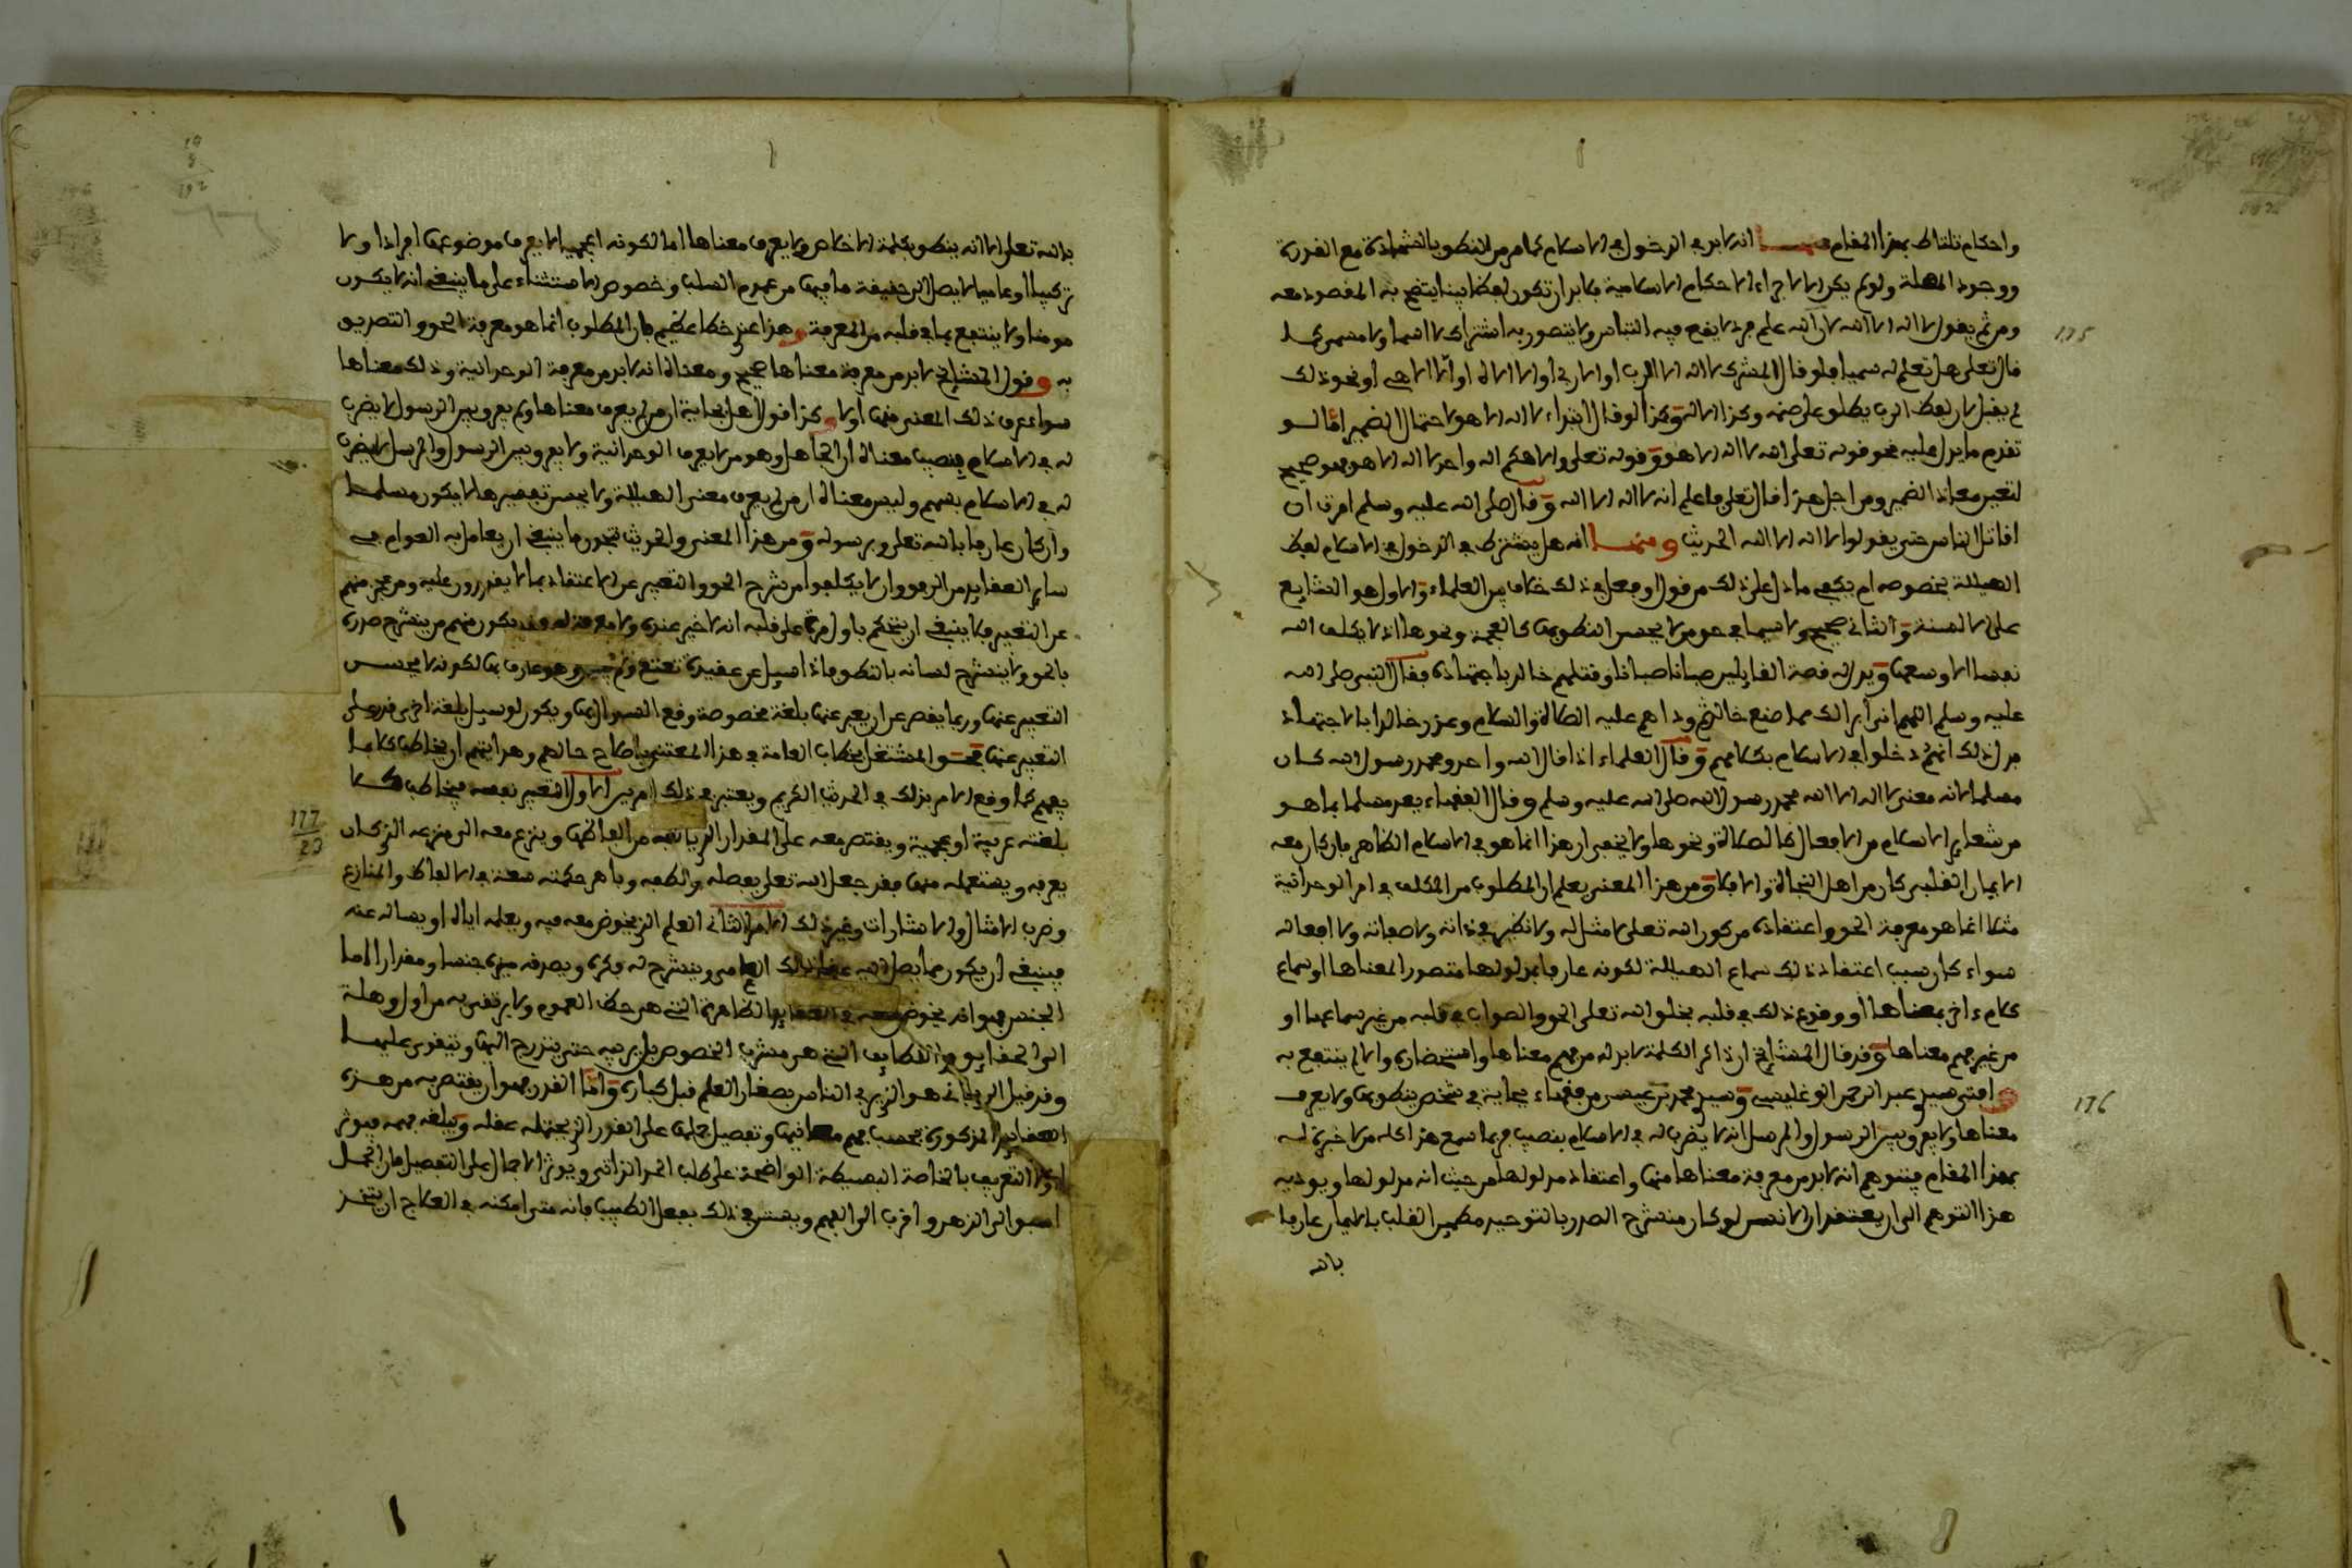 واحكام تناط بهذا المقام فمنها انه لا بد في الدخول في الاسلام كما مر من النطق بالشهادة مع القدرة
ووجود المهلة ولو لم يكن الا لاجراء الاحكام الاسلامية فلا بد ان تكون لفظا بينا يتضح به المقصود معه
ومن ثم يقول لا اله الا الله لان الله علم مفرد لا يقع فيه التباس ولا يتصور به اشتراك لا اسما ولا مسمى كما
قال تعلى هل تعلم له سميا فلو قال المشرك لا اله الا الرب او الا ربي او الا الاله او الا الاحي او نحو ذلك
لم يقبل لان لفظ الرب يطلق على صنمه وكذا الاله وكذا لو قال ابتداء لا اله الا هو لاحتمال الضمير اما لو
تقدم ما يدل عليه نحو قوله تعلى الله لا اله الا هو وقوله تعلى والاهكم اله واحد لا اله الا هو فهو صحيح
لتعين معاد الضمير ومن اجل هذا قال تعلى فاعلم انه لا اله الا الله وقال صلى الله عليه وسلم امرت ان
اقاتل الناس حتى يقولوا لا اله الا الله الحديث ومنها انه هل يشترط في الدخول في الاسلام لفظ
الهيللة بخصوصه ام يكفي ما دل على ذلك من قول او فعل في ذلك خلاف بين العلماء والاول هو الشايع
على الالسنة والثاني صحيح ولا سيما في حق من لا يحسن النطق بها كالعجمة ونحوها اذ لا يكلف الله
نفسا الا وسعها ويدل له قصة القايلين صبانا صبانا وقتلهم خالد باجتهاده فقال النبي صلى الله
عليه وسلم اللهم اني ابرا لك مما صنع خالد ثم وداهم عليه الصلاة والسلام وعذر خالدا بالاجتهاد
فدل ذلك انهم دخلوا في الاسلام بكلامهم وقال العلماء اذا قال الله واحد ومحمد رسول الله كان
مسلما لانه معنى لا اله الا الله محمد رسول الله صلى الله عليه وسلم وقال الفقهاء يعد مسلما بما هو
من شعاير الاسلام من الافعال كالصلاة ونحوها ولا يخفى ان هذا انما هو في الاسلام الظاهر فان كان معه
الايمان القلبي كان من اهل النجاة والا فلا ومن هذا المعنى يعلم ان المطلوب من المكلف في امر الوحدانية
مثلا انما هو معرفة الحق واعتقاده من كون الله تعلى لا مثل له ولا نظير في ذاته ولا صفاته ولا افعاله
سواء كان سبب اعتقاد ذلك سماع الهيللة لكونه عارفا بمدلولها متصورا لمعناها او سماع
كلام ءاخر بمعناها او وقوع ذلك في قلبه بخلق الله تعلى الحق والصواب في قلبه من غير سماعها او
من غير فهم معناها وقد قال المشايخ ان ذاكر الكلمة لا بد له من فهم معناها واستحضاره والا لم ينتفع به
وافتى سيدي عبد الرحمن الوغليسي وسيدي محمد بن عيسى من فقهاء بجاية في شخص ينطق بها ولا يعرف
معناها ولا يفرق بين الرسول والمرسل انه لا يضرب له في الاسلام بنصيب فربما سمع هذا كله من لا خبرة له
بهذا المقام فيتوهم انه لا بد من معرفة معناها منها واعتقاد مدلولها من حيث انه مدلولها ويوديه
هذا التوهم الى ان يعتقد ان الانسان لو كان منشرح الصدر بالتوحيد مطمين القلب بالايمان عارفا
بالله
175
176
بالله تعلى الا انه ينطق بكلمة الاخلاص ولا يعرف معناها اما لكونه اعجميا لا يعرف موضوعها افرادا ولا
تركيبا او عاميا لا يصل الى حقيقة ما فيها من عموم السلب وخصوص الاستثناء على ما ينبغي انه لا يكون
مومنا ولا ينتفع بما في قلبه من المعرفة وهذا عندي خطا عظيم فان المطلوب انما هو معرفة الحق والتصديق
به وقول المشايخ لا بد من معرفة معناها صحيح ومعناه انه لا بد من معرفة الوحدانية وذلك معناها
سواء عرف ذلك المعنى منها اولا وكذا قول اهل بجاية ان من لم يعرف معناها ولم يفرق بين الرسول لا يضرب
له في الاسلام بنصيب معناه ان الجاهل وهو من لا يعرف الوحدانية ولا يفرق بين الرسول والمرسل لا يضرب
له في الاسلام بسهم وليس معناه ان من لم يعرف معنى الهيللة ولا يحسن تفسيرها لا يكون مسلما
وان كان عارفا بالله تعلى وبرسوله ومن هذا المعنى والحديث تجوز ما ينبغي ان يعامل به العوام في
ساير العقايد من الرفق وان لا يكلفوا من شرح الحق والتعبير عن الاعتقاد بما لا يقدرون عليه ومن عجز منهم
عن التعبير فلا ينبغي ان يتحكم باول مرة على قلبه انه لا خير عنده ولا معرفة له فقد يكون منهم من ينشرح صدره
بالحق ولا ينشرح لسانه بالنطق فاذا سيل عن عقيدته تعتع ولم يبين وهو عارف بها لكونه لا يحسن
التعبير عنها وربما يقصر عن ان يعبر عنها بلغة مخصوصة وقع السؤال بها ويكون لو سيل بلغة اخرى قدر على
التعبير عنها فحق المشتغل بخطاب العامة في هذا المعتنى باصلاح حالهم وهدايتهم ان يخاطب كلا بما
يفهم كما وقع الامر بذلك في الحديث الكريم ويعتبر في ذلك امرين الاول التعبير نفسه فيخاطب كلا
بلغته عربية او عجمية ويقتصر معه على المقدار الذي يالفه من الفاظها وينزع معه الى منزعه الذي كان
يعرفه ويستعمله منها فقد جعل الله تعلى بفضله ولطفه وباهر حكمته سعة في الالفاظ والمنازع
وضرب الامثال والاشارات وغير ذلك الامر الثاني العلم الذي يخوض معه فيه ويعلمه اياه او يساله عنه
فينبغي ان يكون مما يصل اليه عقل ذلك العامي وينشرح له فكره ويصرفه ميزه جنسا ومقدارا اما
الجنس فهو انه يخوض معه في العقايد الظاهرة التي هي حظ العموم ولا يرتقي به من اول وهلة
الى الحقايق واللطايف التي هي مشرب الخصوص بل يربيه حتى يتدرج اليها ويتقوى عليها
وقد قيل الرباني هو الذي يربي الناس بصغار العلم قبل كباره واما القدر فهو ان يقتصر به من هذه
العقايد المذكورة بحسب فهم معانيها وتفصيل جملها على القدر الذي يحتمله عقله ويبلغه فهمه فيوثر
التعريف بالخاصة البسيطة الواضحة على طلب الحد الذاتي ويوثر الاجمال على التفصيل فان المجمل
اسبق الى الذهن واقرب الى الفهم ويعتبر في ذلك بفعل الطبيب فانه متى امكنه في العلاج ان يتخذ
177